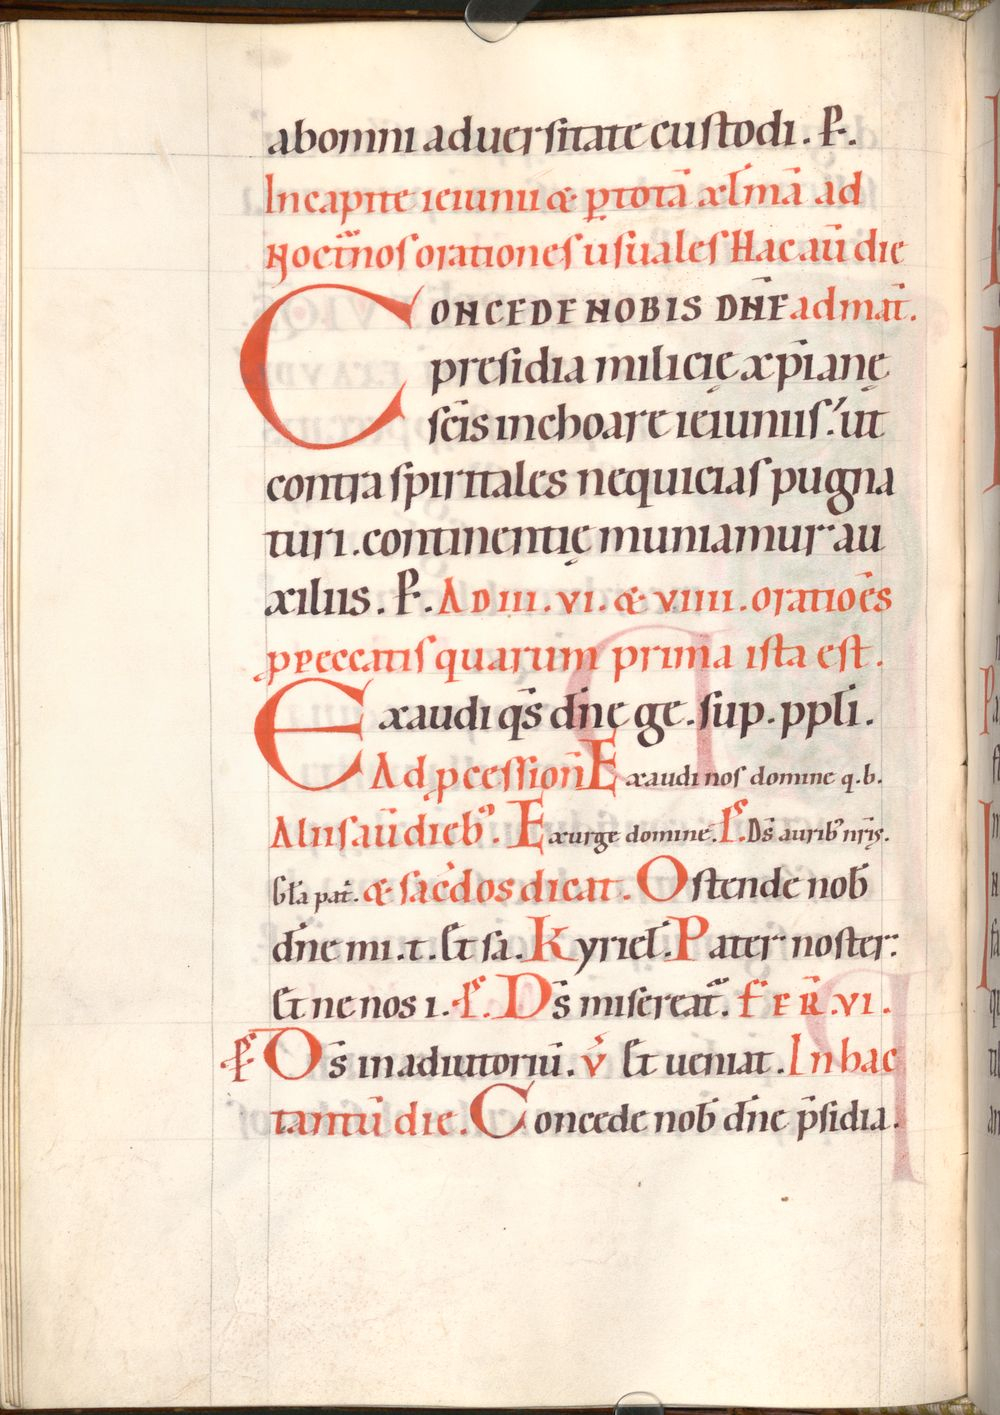 abomni aduersitate custodi. P̶.
In capite ieiunii & ꝑ totā xl̄mā ad
Noct̄nos orationes usuales Hac aū die
CONCEDE NOBIS DN̄E ad mat̄.
presidia milicię xp̄ianę
sc̄is inchoare ieiuniis. ut
contra spiritales nequicias pugna
turi. continentię muniamur au
xiliis. P̶. AD III. VI. & VIIII. oratiōes
p peccatis quarum prima ista est.
Exaudi qs̄ dn̄e ge. sup. ppli.
Ad ꝓcession̄ Exaudi nos domine q. b.
Aliis aū dieb᾽. Exurge domine. P̶s. Ds̄ aurib᾽ nr̄is.
Gl̄a pat̄. & sac̄dos dicat. Ostende nob̄
dn̄e mi. t. Et sa. Kyriel̄. Pater noster:
Et ne nos i. P̶s. Ds̄ misereat᾽. FER̄. VI.
P̶s Ds̄ in adiutoriū. v̄ Et ueniat. In hac
tantū die. Concede nob̄ dn̄e p̄sidia.